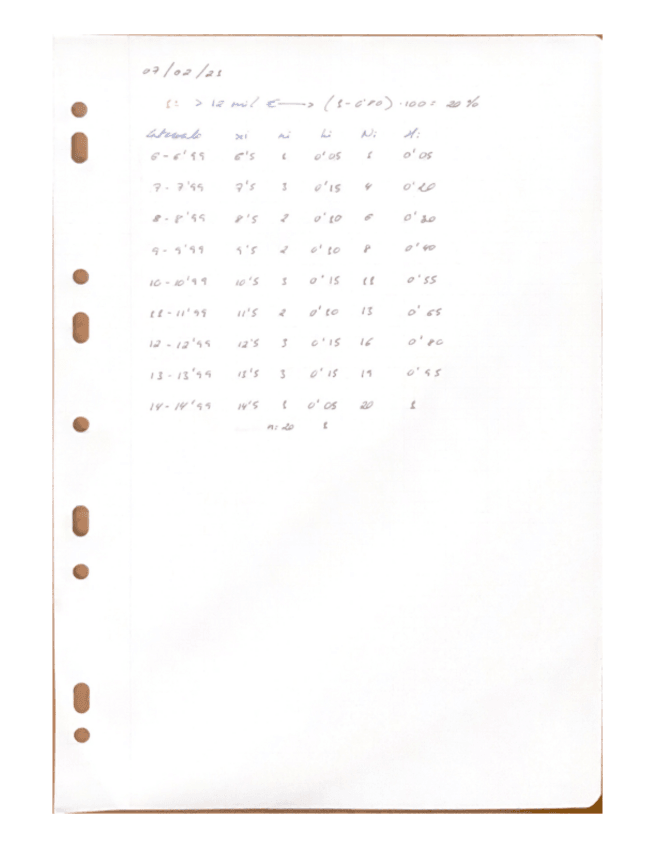 07/02/21
1: > 12 mil € → (1-0'80) ·100 = 20 %
Intervalo xi ni hi Ni Hi
6-6'99 6'5 1 0'05 1 0'05
7-7'99 7'5 3 0'15 4 0'20
8-8'99 8'5 2 0'10 6 0'30
9-9'99 9'5 2 0'10 8 0'40
10-10'99 10'5 3 0'15 11 0'55
11-11'99 11'5 2 0'10 13 0'65
12-12'99 12'5 3 0'15 16 0'80
13-13'99 13'5 3 0'15 19 0'95
14-14'99 14'5 1 0'05 20 1
n: 20 1